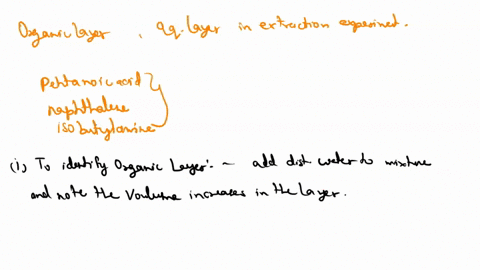 Organic Layer , aq. layer in extraction experiment.
Pentanoic acid
naphthalene
isobutylamine
(i) To identify Organic Layer: - add dist water to mixture
and note the Voulume increases in the Layer.